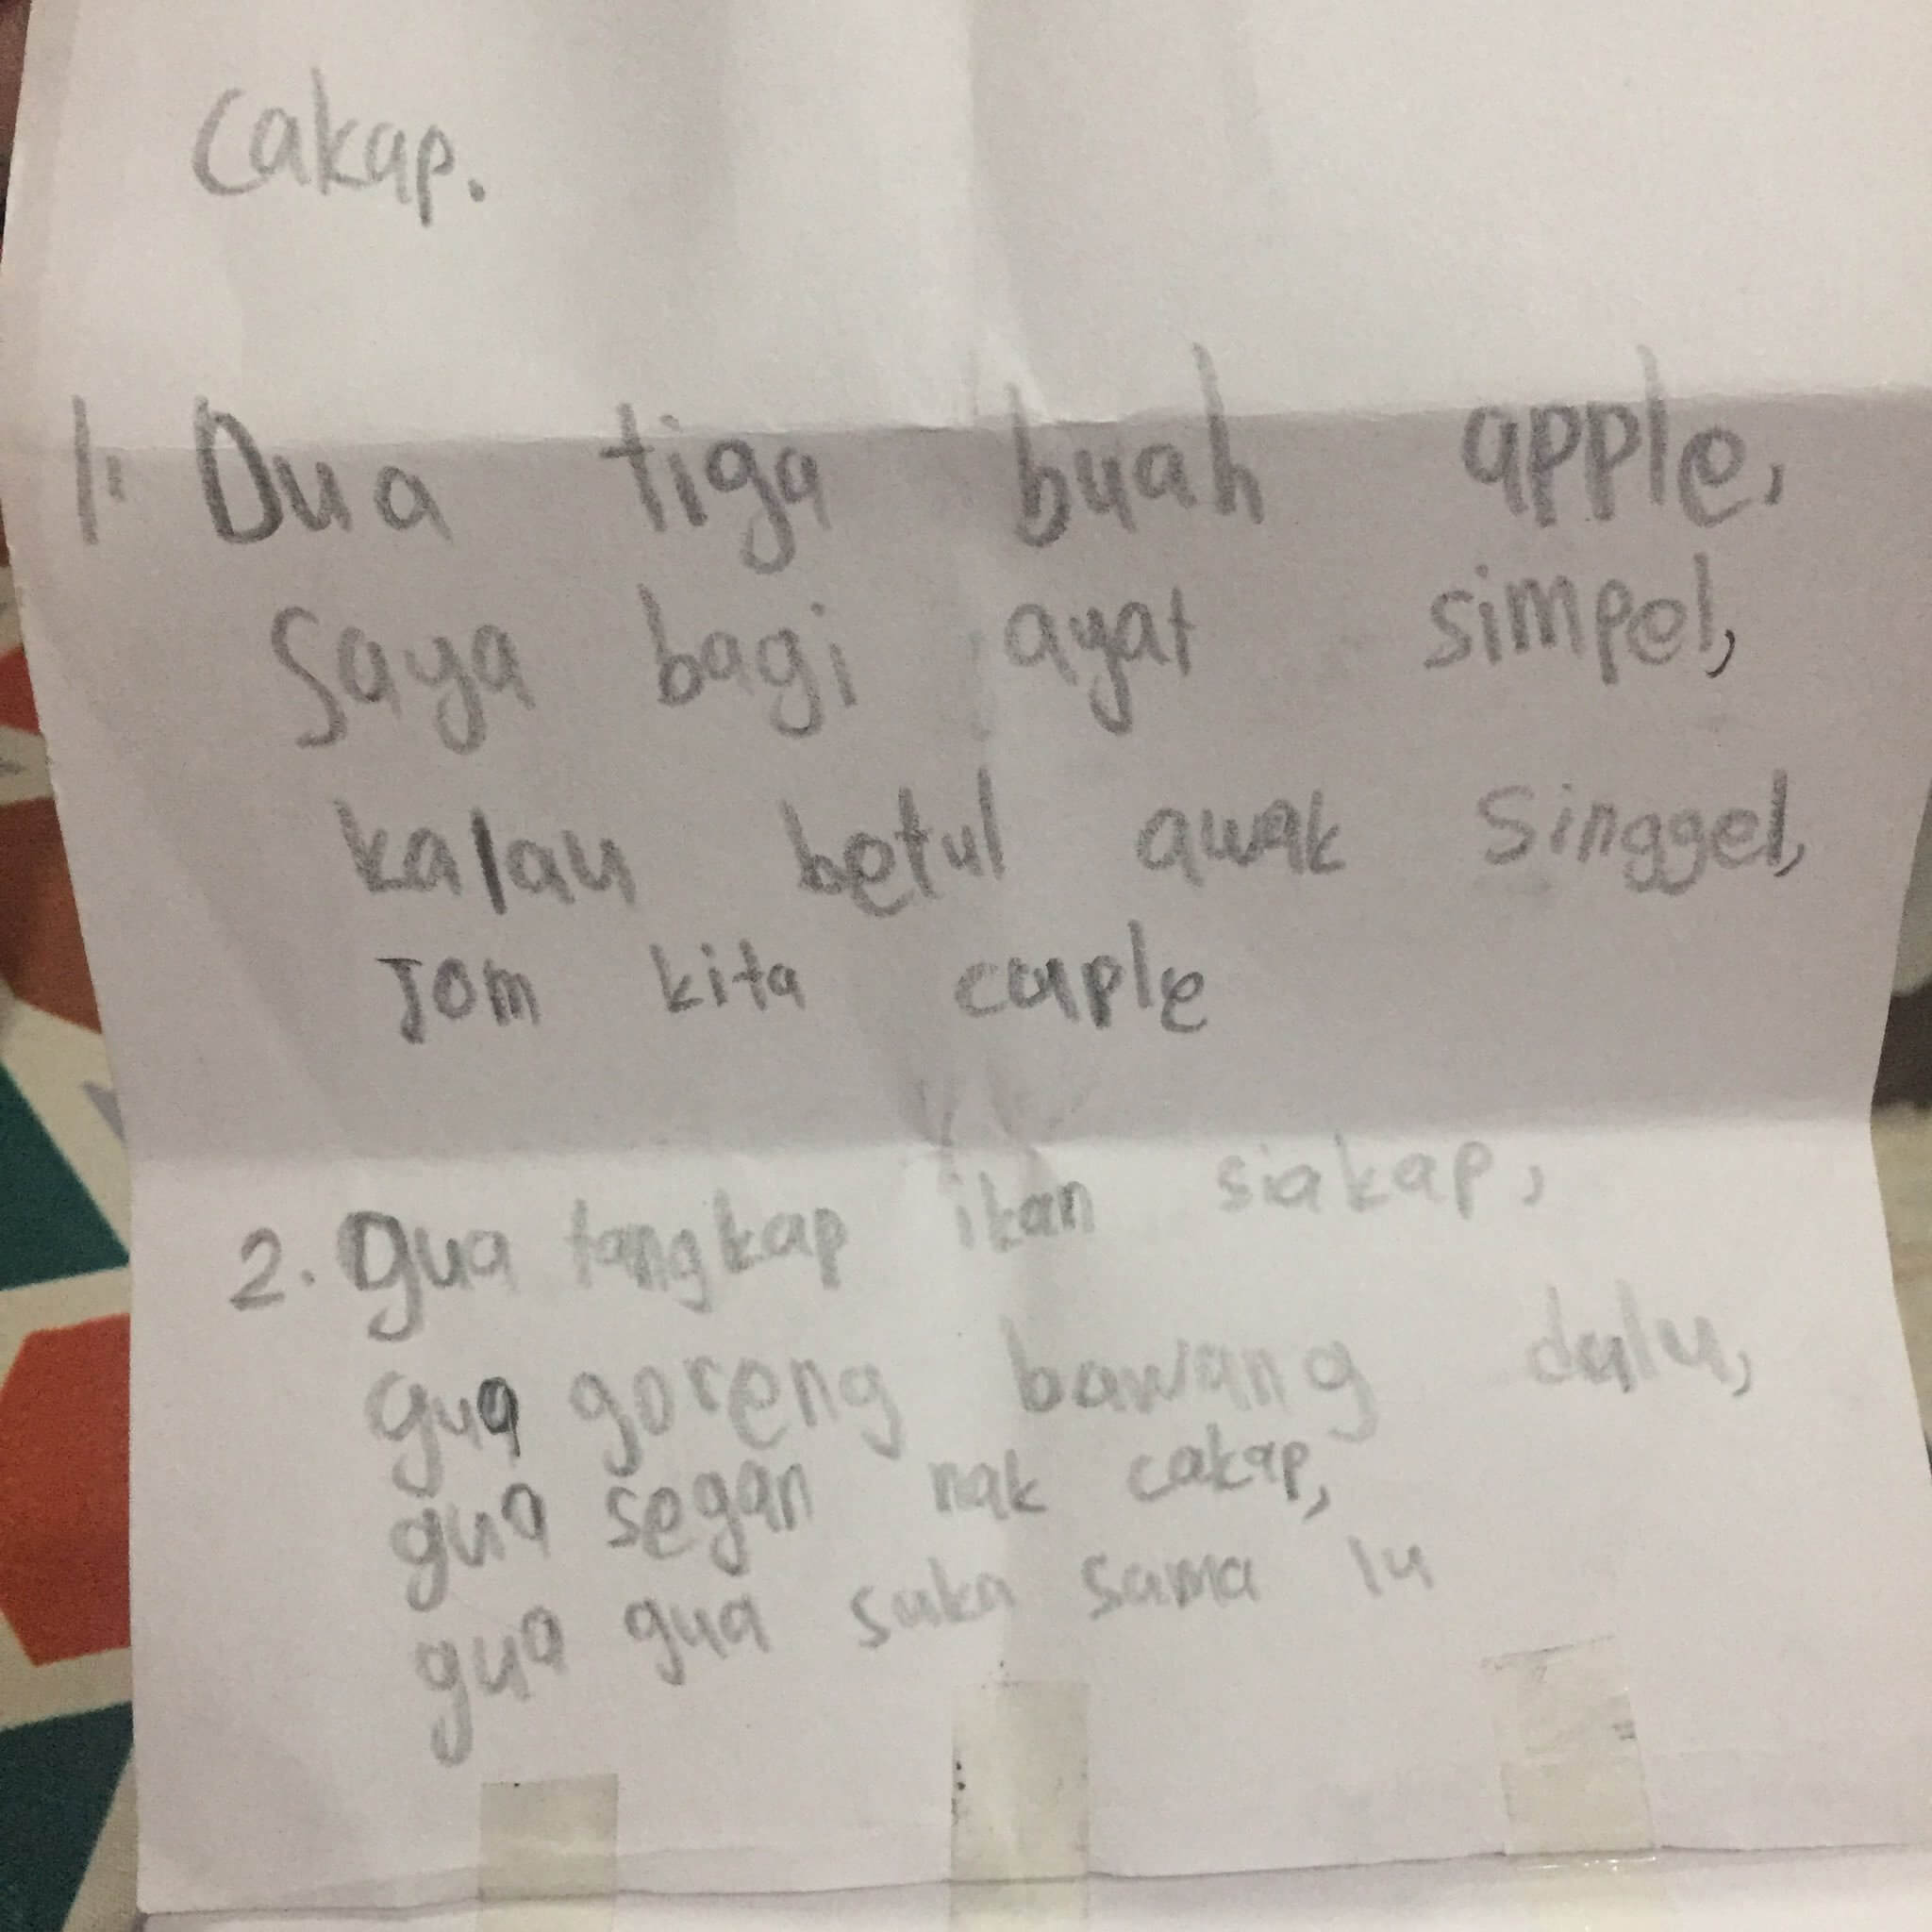 Cakap.
1. Dua tiga buah apple,
Saya bagi ayat simpel,
kalau betul awak Singgel,
Jom kita cuple
2. gua tangkap ikan siakap,
gua goreng bawang dulu,
gua segan nak cakap,
gua gua suka sama lu